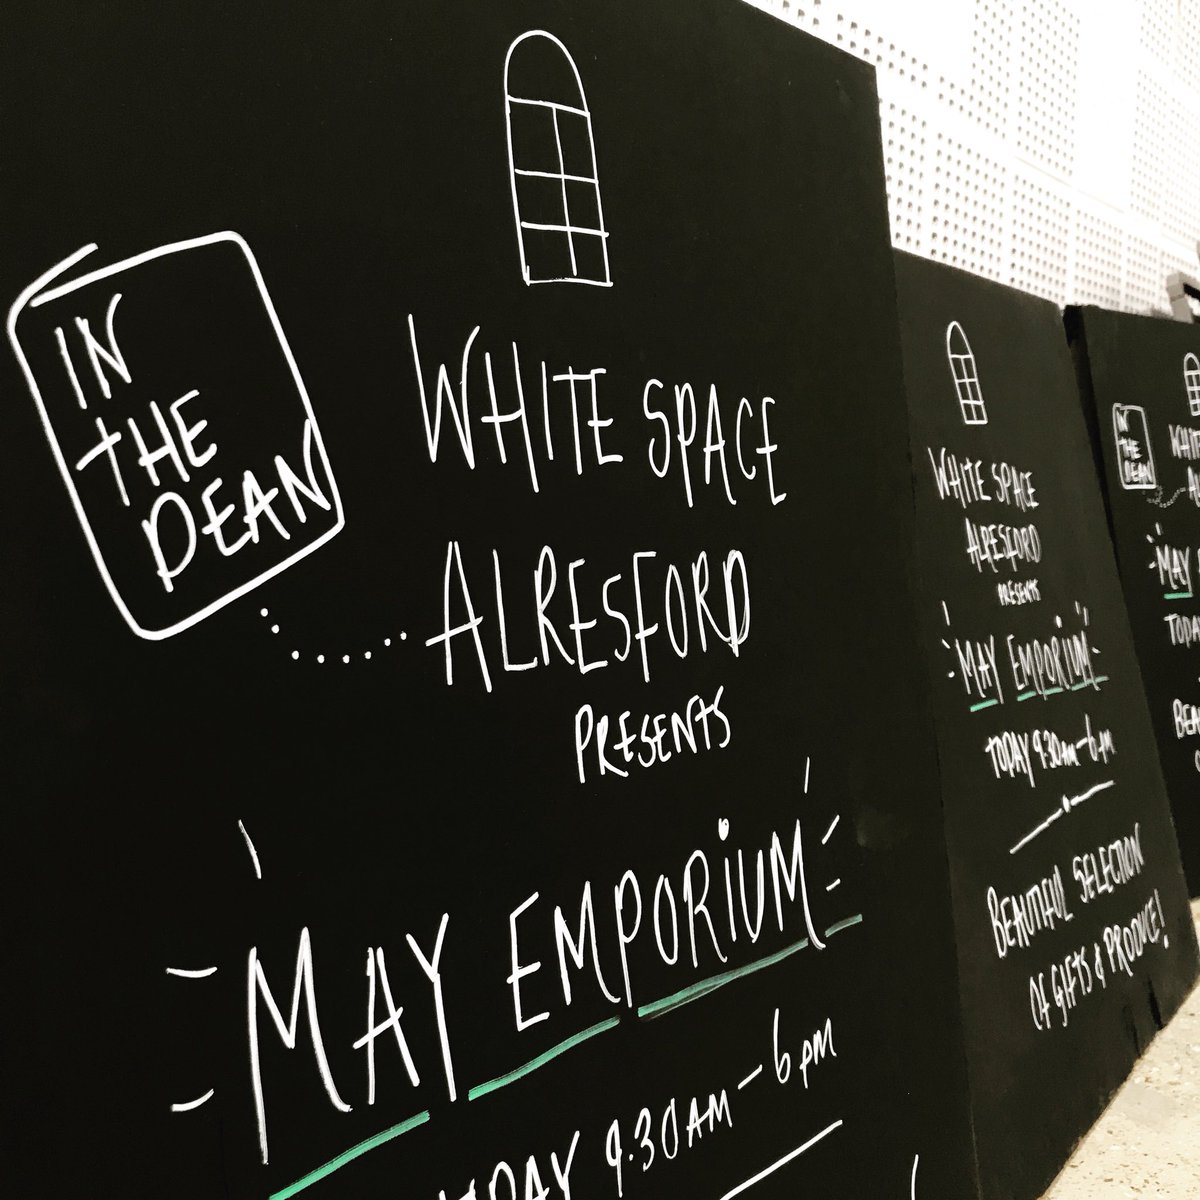 IN
THE
DEAN
WHITE SPACE
ALRESFORD
PRESENTS
MAY EMPORIUM
9.30AM - 6PM
WHITE SPACE
ALRESFORD
PRESENTS
MAY EMPORIUM
TODAY 9.30AM - 6PM
BEAUTIFUL SELECTION
OF GIFTS & PRODUCE!
IN
THE
DEAN
MAY